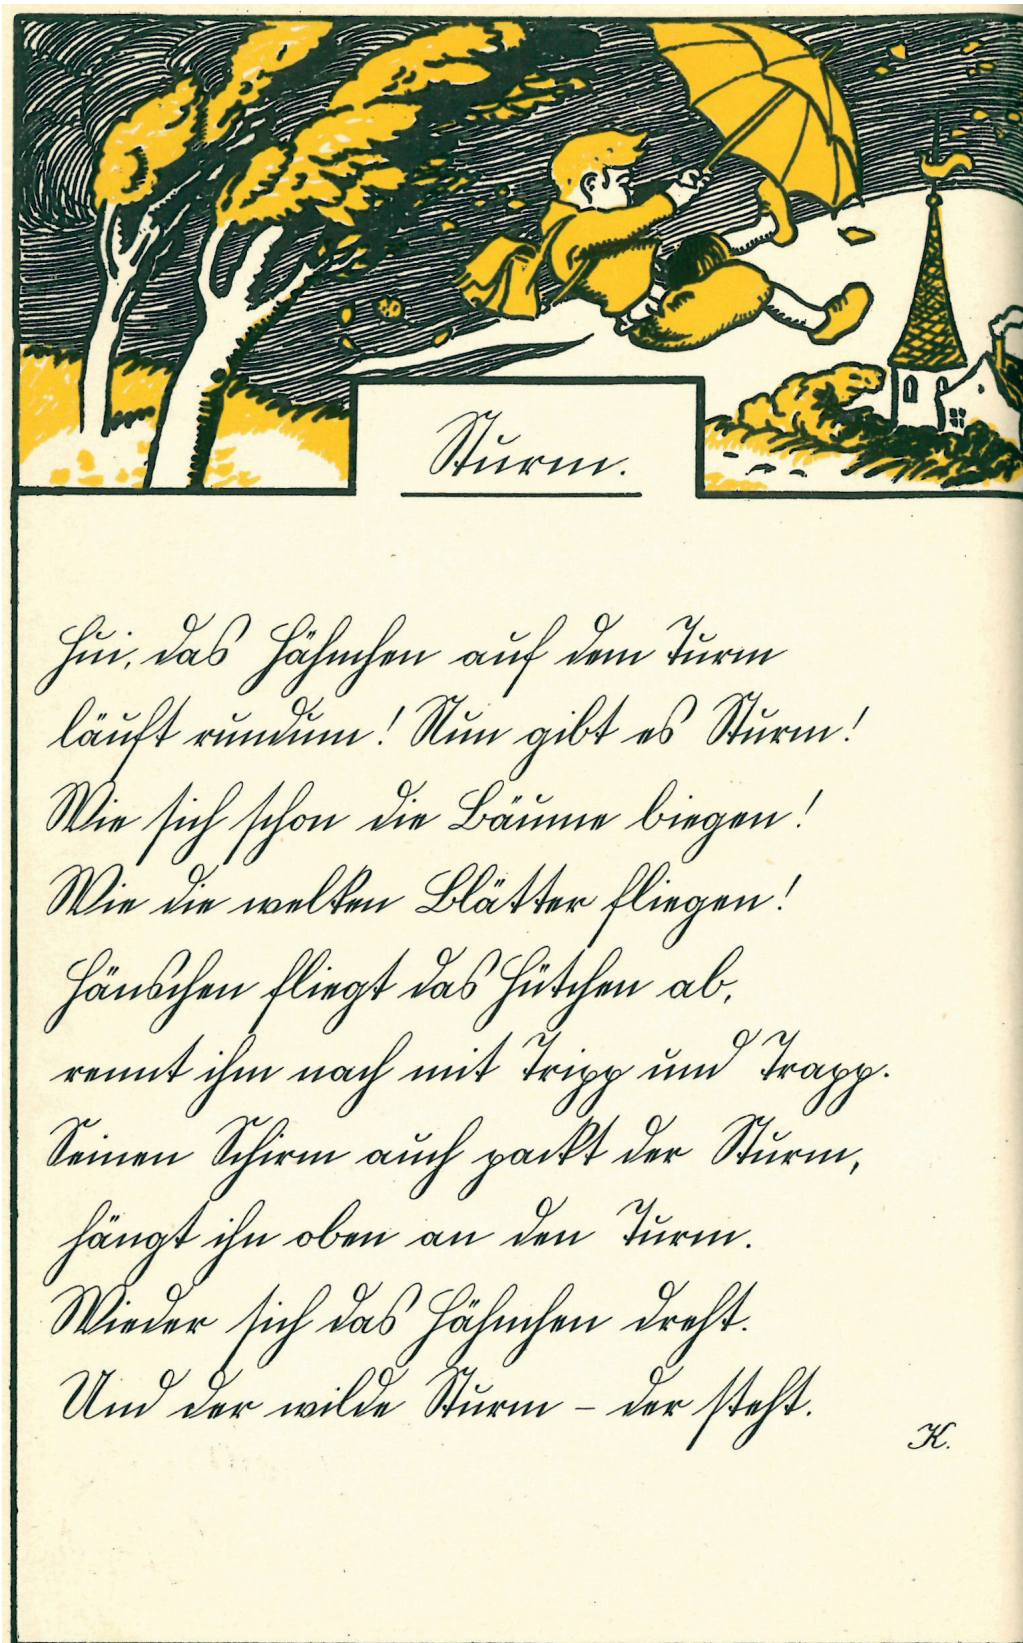 Sturm.
Hui, das Hähnchen auf dem Turm
läuft rundum! Nun gibt es Sturm!
Wie sich schon die Bäume biegen!
Wie die welken Blätter fliegen!
Hänschen fliegt das Hütchen ab,
rennt ihm nach mit Tripp und Trapp.
Seinen Schirm auch packt der Sturm,
hängt ihn oben an den Turm.
Wieder sich das Hähnchen dreht.
Und der wilde Sturm – der steht.
K.